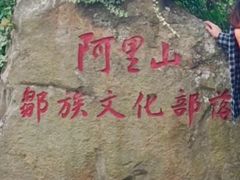 阿里山
鄒族文化部落